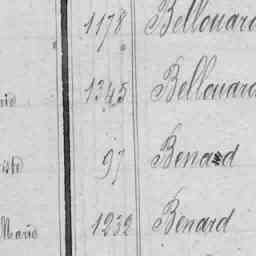 1178 Bellouard
1345 Bellouard
97 Benard
Marie 1232 Benard